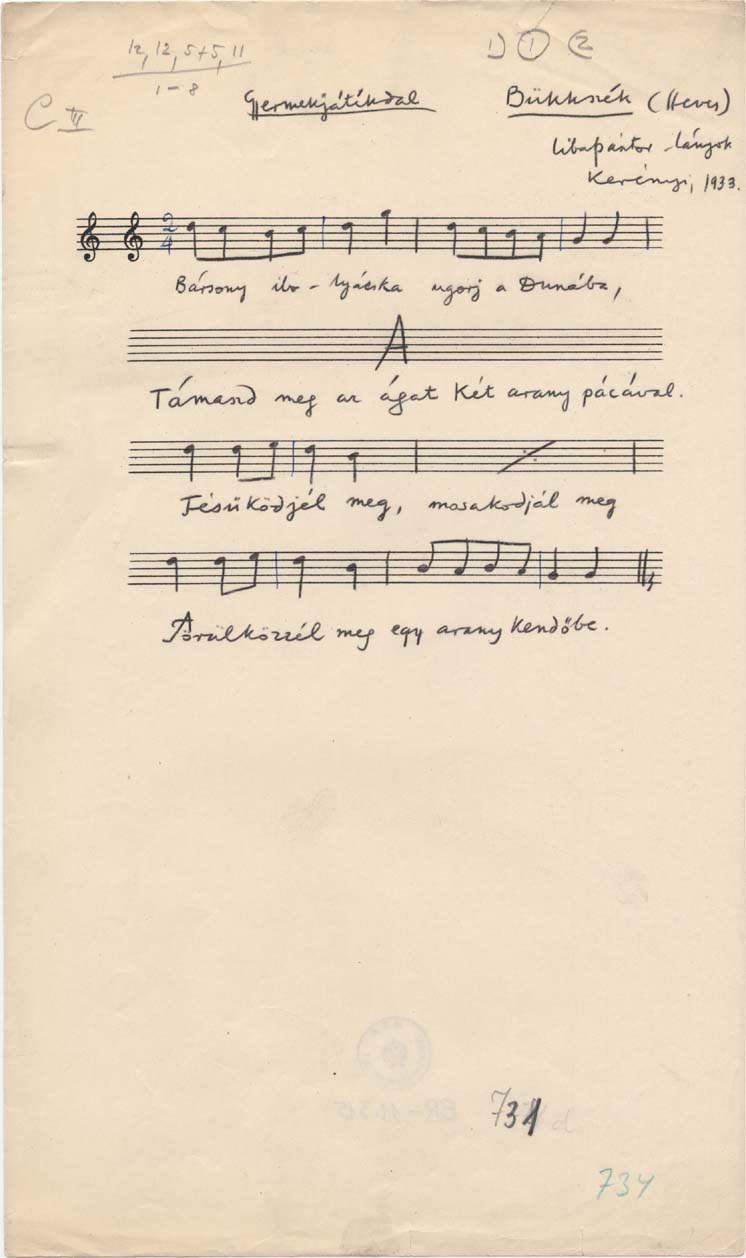 12, 12, 5+5, 11
1) 1 2
1-8
C III
Gyermekjátékdal
Bükkszék (Heves)
libapásztor lányok
Kerényi, 1933.
2
4
Bársony ibo-lyácska ugorj a Dunába,
A
Támaszd meg az ágat Két arany pácával.
Fésűködjél meg, mosakodjál meg
Törülközzél meg egy arany Kendőbe.
731
734